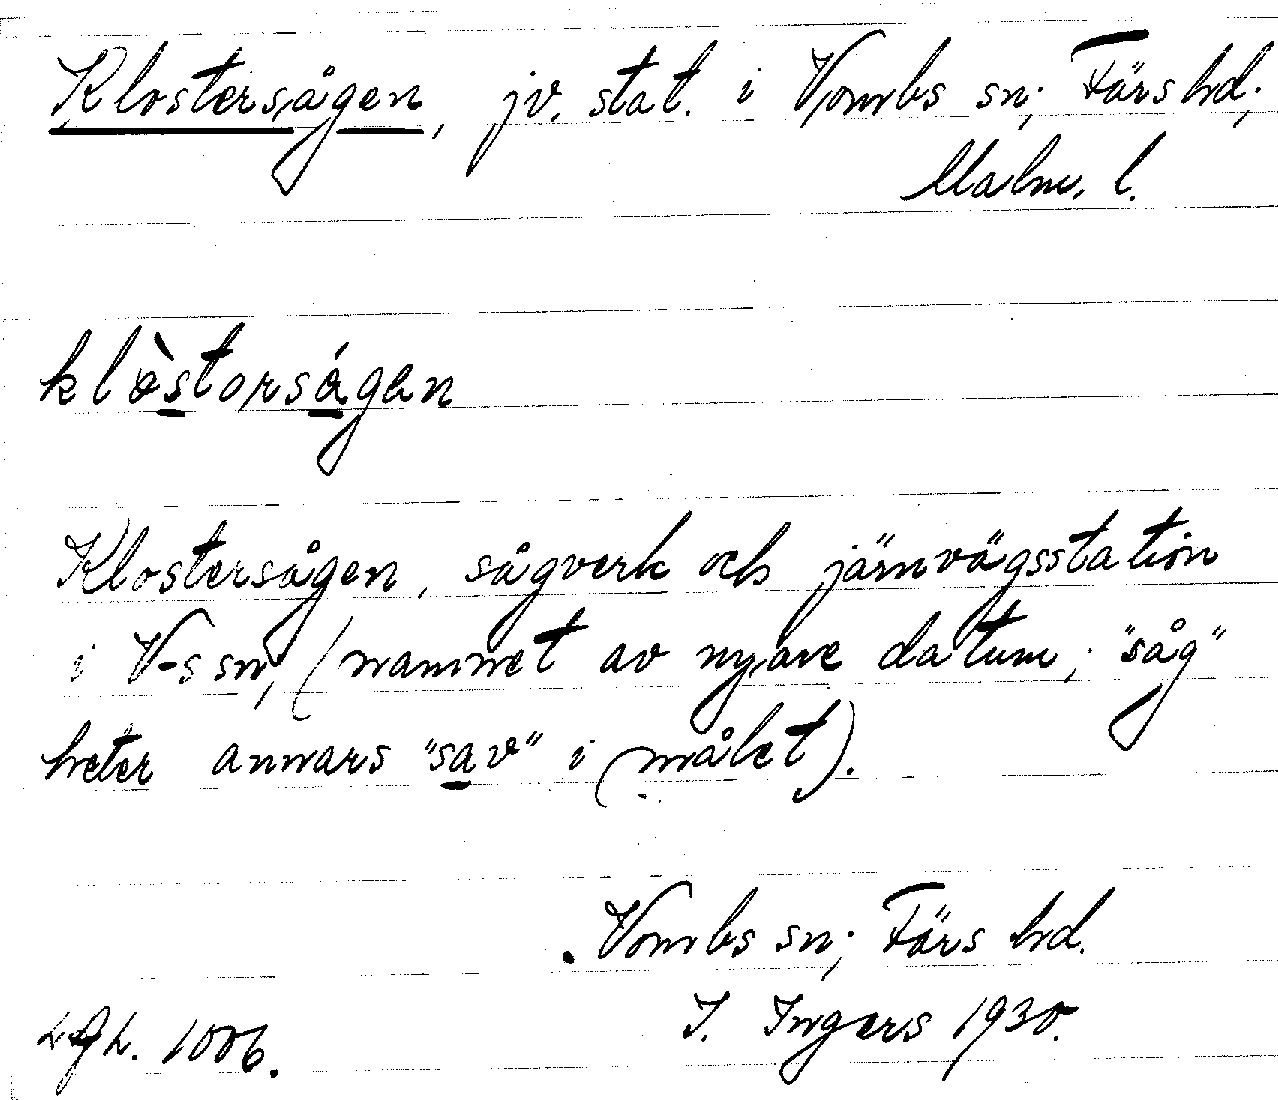 Klostersågen, jv. stat. i Vombs sn; Färs hd;
Malm. l.
klòstorságen
Klostersågen, sågverk och järnvägsstation
i V-s sn; (namnet av nyare datum; "såg"
heter annars "sav" i målet).
Vombs sn; Färs hd.
I. Ingers 1930.
1006.